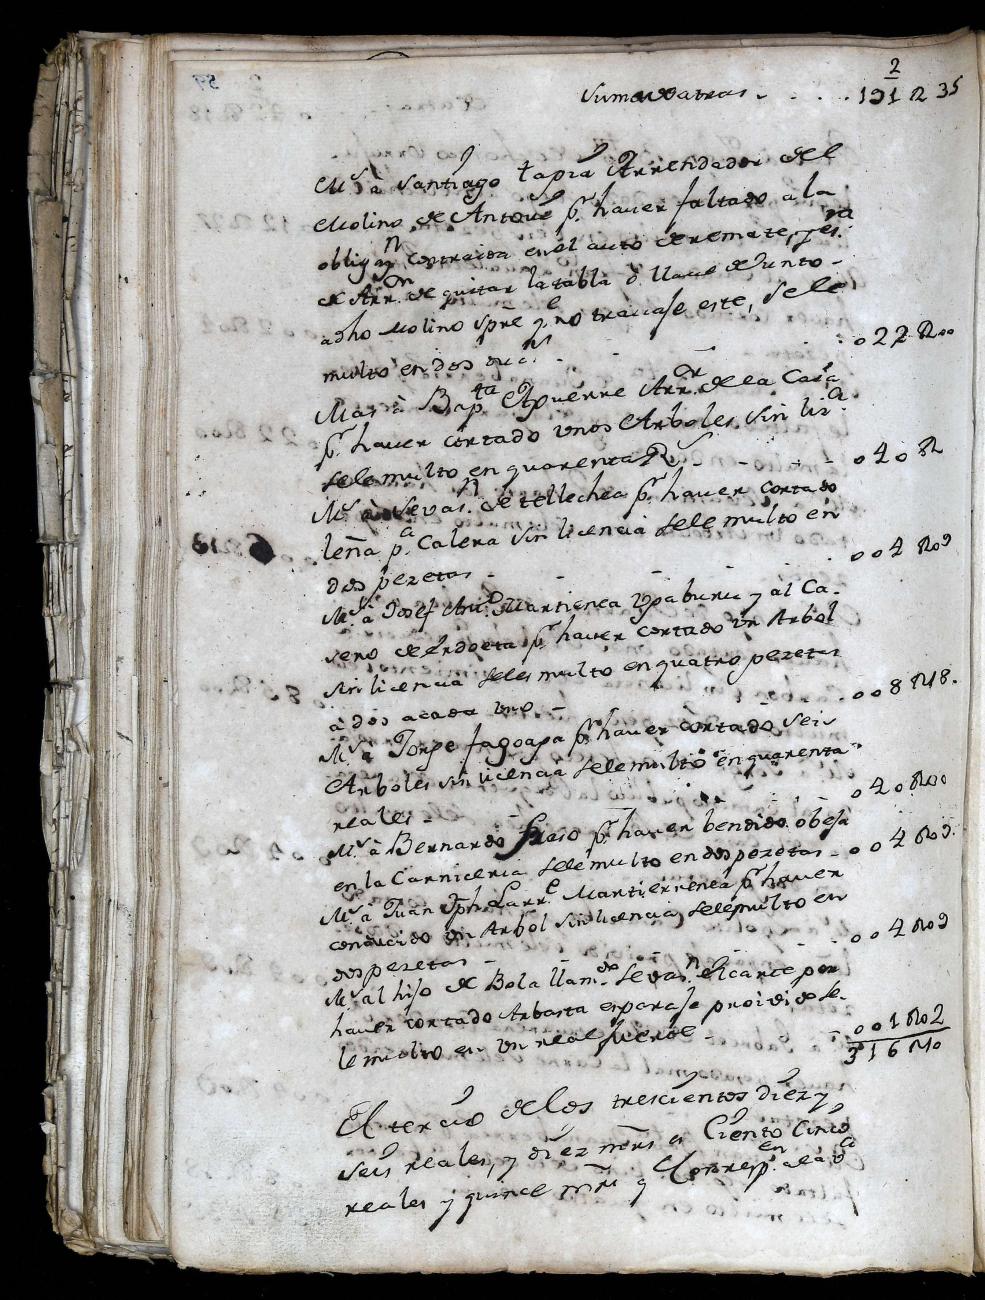 Suma de atras - . . . . . 191 R 35
2
Ms. à Santiago tapia Arrendador del
Molino de Antove pr. haver faltado a la
obligon. contraida en el auto de remate, y esra.
de Arron. de quitar la tabla o llave de junto -
a dho Molino spre qe no travase este, se le
multo en dos ducs. - o 22 Roo
Mas à Bapta. Arror. de la Casa
pr. haver cortado unos Arboles, sin lisa.
se le multo en quarenta Rs. - - - - o 4 o R
Ms. à Sevasn. de tellechea pr. haver cortado
leña pa. Calera sin licencia se le multo en
dos pezetas - - - o o 4 Ro9
Ms. à Josef Anto. Martienea y al Ca-
sero de Erdoeta pr. haver cortado un Arbol
sin licencia se les multo en quatro pezetas
à dos a cada uno - o o 8 R18.
Ms. à Jorge fagoaga pr. haver cortado seis
Arboles sin licencia se le multo en quarenta
reales - o 4 o Roo
Ms. à Bernardo haver bendido obeja
en la Carniceria se le multo en dos pezetas - o o 4 Ro9.
Ms. à Juan Jph Larre. Martierrenea pr. haver
conducido un Arbol sin licencia, se le multo en
dos pezetas - - - o o 4 Ro9
Ms. al hijo de Bola llamdo. Sevasn. por
haver cortado Arbasta en paraje proivido se-
le multo en un real fuerte - - o o 1 Ro2
316 R10
El tercio de los trescientos diez y
seis reales, y diez mrs. es Ciento Cinco
reales y quince mrs. q Correspen. a la va.